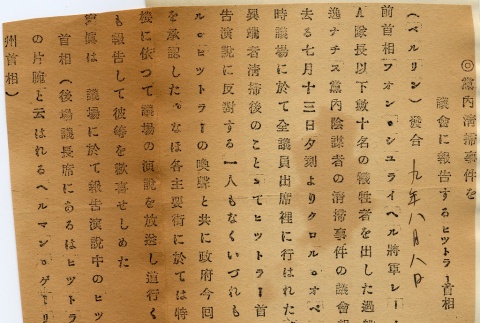 ◎黨內淸掃事件を
議會に報告するヒツトラー首相
(ベルリン)發合 九年八月八日
前首相フオン。シユライヘル將軍レー・
A隊長以下數十名の犧牲者を出した過般
逸ナチス黨內陰謀者の淸掃事件の議會報
去る七月十三日夕刻よりクロル。オペ
時議場に於て全議員出席裡に行はれた
異端者淸掃後のことゝてヒツトラー首
告演說に反對する一人もなくいづれも
ル。ヒツトラーの喚聲と共に政府今回
を承認した。なほ各主要街に於ては特
機に依つて議場の演說を放送し道行く
も報告して彼等を歡喜せしめた
寫眞は 議場に於て報告演說中のヒツ
首相(後場議長席にあるはヒツトラ
の片腕と云はれるヘルマン。ゲーリ
州首相)